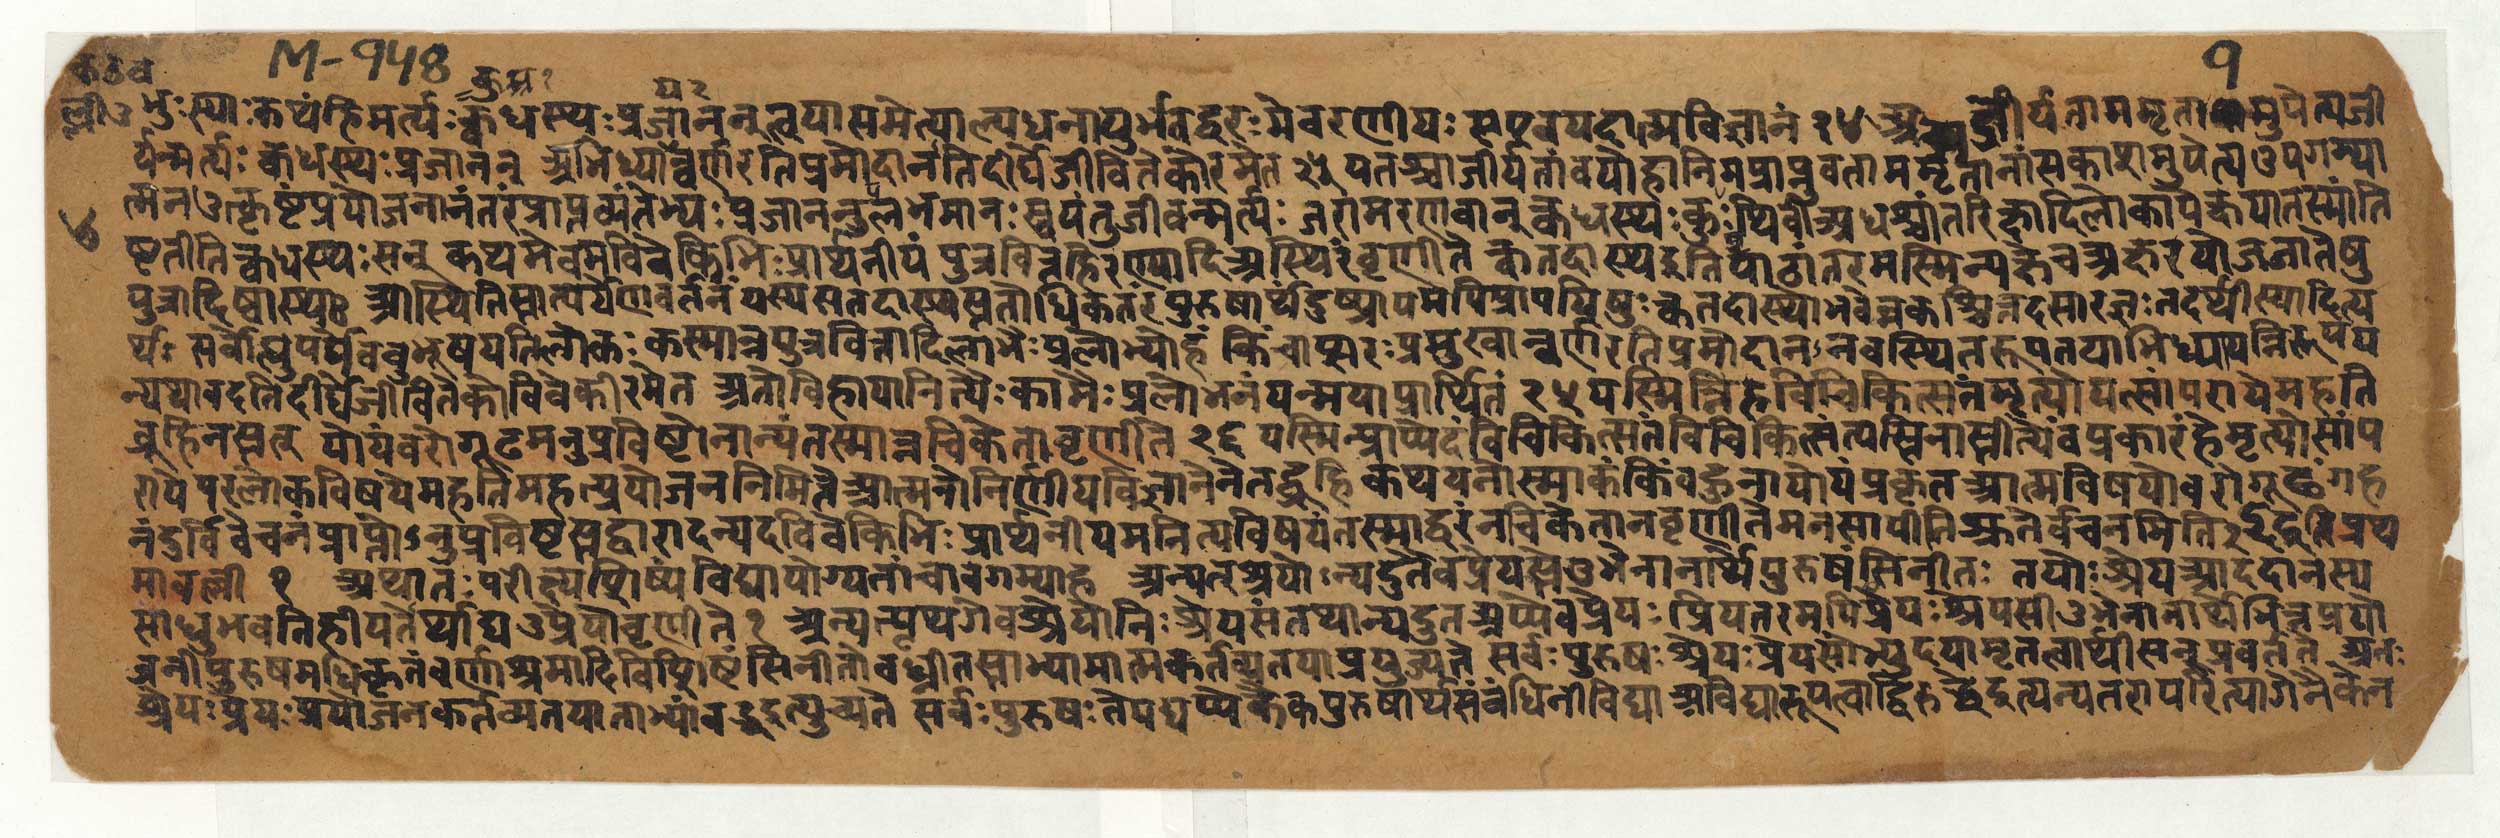 कठव M-१५४ १
ल्ली उ भुः स्याः कथं हि मर्त्यः क्वधस्थः प्रजानन् त्वया समेत्याल्पधनायुर्भवेद्वरः मे वरणीयः स एव यदात्मविज्ञानं २४ अजीर्यताममृतानामुपेत्य जी
र्यन्मर्त्यः क्वधस्थः प्रजानन् अभिध्यायन्वर्णरतिप्रमोदानतिदीर्घे जीविते को रमेत २५ यतश्चाजीर्यतां वयोहानिमप्राप्नुवताममृतानां सकाशमुपेत्य उपगम्या
त्मन उत्कृष्टं प्रयोजनानंतरं प्राप्तव्यं तेभ्यः प्रजानन्नुलभमानः स्वयं तु जीर्यन्मर्त्यः जरामरणवान् क्वधस्थः कुः पृथिवी अधश्चांतरिक्षादिलोकापेक्षया तस्यां ति
४
ष्ठतीति क्वधस्थः सन् कथमेवमविवेकिभिः प्रार्थनीयं पुत्रवित्तहिरण्यादि अस्थिरं वृणीते क्व तदास्थ इति पाठांतरमस्मिन्पक्षे च अक्षरयोजना तेषु
पुत्रादिष्वास्था आस्थितिस्तात्पर्येण वर्तनं यस्य स तदास्थस्ततोधिकतरं पुरुषार्थं दुष्प्रापमपि प्रापयिषुः क्व तदास्थो भवेन्न कश्चित्तदसारज्ञः तदर्थी स्यादित्य
र्थः सर्वो ह्युपर्युपर्येव बुभूषयति लोकः कस्मान्न पुत्रवित्तादिलाभैः प्रलोभ्योहं किंचाप्सरःप्रमुखान्वर्णरतिप्रमोदाननवस्थितरूपतयाभिध्यायन्निरूपय
न्यथावदतिदीर्घे जीविते को विवेकी रमेत अतो विहायानित्यैः कामैः प्रलोभनं यन्मया प्रार्थितं २५ यस्मिन्निदं विचिकित्सन्तं मृत्यो यत्सांपराये महति
ब्रूहि नस्तत् योयं वरो गूढमनुप्रविष्टो नान्यं तस्मान्नचिकेता वृणीते २६ यस्मिन्प्राप्येदं विचिकित्सतं विचिकित्संत्यस्तिनास्तीत्येवंप्रकारं हे मृत्यो सांप
राये परलोकविषये महति महत्प्रयोजननिमित्ते आत्मनो निर्णीयविज्ञानेनैतद्ब्रूहि कथय नोस्माकं किं बहुना योयं प्रकृत आत्मविषयो वरो गूढं गह
नं दुर्विवेचनं प्राप्तोऽनुप्रविष्टस्तद्वारादन्यदविवेकिभिः प्रार्थनीयमनित्यविषयं तस्माद्वरं नचिकेता न वृणीते मनसापीति श्रुतेर्वचनमिति २६ इति प्रथ
मा वल्ली १ अथातः परीक्ष्य शिष्यं विद्यायोग्यतां चावगम्याह अन्यत् श्रेयोऽन्यदुतैव प्रेयस्ते उभे नानार्थे पुरुषं सिनीतः तयोः श्रेय आददानस्य
साधु भवति हीयतेर्थाद्य उ प्रेयो वृणीते १ अन्यत्पृथगेव श्रेयोनिःश्रेयसं तथान्यदुत अप्येव प्रेयः प्रियतरमपि प्रेयः श्रेयसी उभे नानार्थे भिन्नप्रयो
जनी पुरुषमधिकृतं वर्णाश्रमादिविशिष्टं सिनीतो बध्नीतस्ताभ्यामात्मकर्तव्यतया प्रयुज्यते सर्वः पुरुषः श्रेयःप्रेयसोर्भ्युदयामृतत्वार्थी सन् प्रवर्तते अतः
श्रेयःप्रेयःप्रयोजनकर्तव्यतया ताभ्यां बद्ध इत्युच्यते सर्वः पुरुषः ते यद्यप्येकैकपुरुषार्थसंबंधिनी विद्याअविद्यारूपत्वाद्विरुद्धे इत्यन्यतरापरित्यागेनैकेन